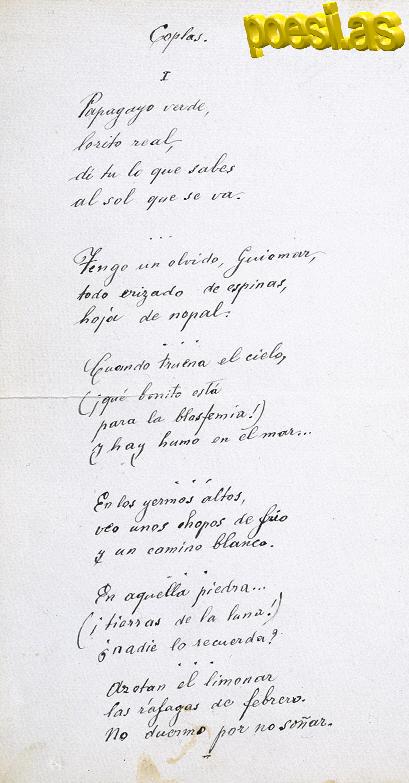 poesi.as
Coplas.
I
Papagayo verde,
lorito real,
di tu lo que sabes
al sol que se va.
...
Tengo un olvido, Guiomar,
todo erizado de espinas,
hoja de nopal.
...
Cuando truena el cielo,
(¡qué bonito está
para la blasfemia!)
y hay humo en el mar...
...
En los yermos altos,
veo unos chopos de frío
y un camino blanco.
...
En aquella piedra...
(¡tierras de la luna!)
¿nadie lo recuerda?
...
Azotan el limonar
las ráfagas de febrero.
No duermo por no soñar.